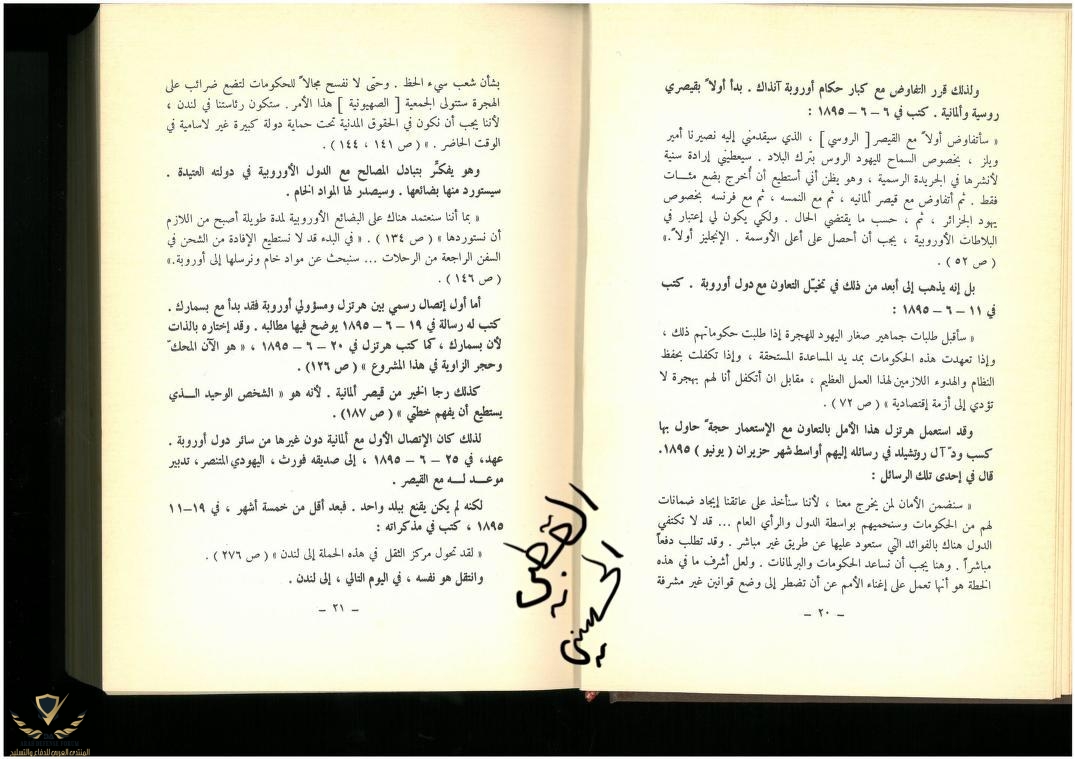 ولذلك قرر التفاوض مع كبار حكام أوروبة آنذاك . بدأ أولاً بقيصري
روسية وألمانية . كتب في ٦ – ٦ – ١٨٩٥ :
« سأتفاوض أولاً مع القيصر [ الروسي ] ، الذي سيقدمني إليه نصيرنا أمير
ويلز ، بخصوص السماح لليهود الروس بترك البلاد . سيعطيني إرادة سنية
لأنشرها في الجريدة الرسمية ، وهو يظن أني أستطيع أن أخرج بضع مئات
فقط . ثم أتفاوض مع قيصر ألمانيه ، ثم مع النمسه ، ثم مع فرنسه بخصوص
يهود الجزائر ، ثم ، حسب ما يقتضي الحال . ولكي يكون لي إعتبار في
البلاطات الأوروبية ، يجب أن أحصل على أعلى الأوسمة . الإنجليز أولاً .»
( ص ٥٢ ) .
بل إنه يذهب إلى أبعد من ذلك في تخيّل التعاون مع دول أوروبة . كتب
في ١١ – ٦ – ١٨٩٥ :
« سأقبل طلبات جماهير صغار اليهود للهجرة إذا طلبت حكوماتهم ذلك ،
وإذا تعهدت هذه الحكومات بمد يد المساعدة المستحقة ، وإذا تكفلت بحفظ
النظام والهدوء اللازمين لهذا العمل العظيم ، مقابل ان أتكفل أنا لهم بهجرة لا
تؤدي إلى أزمة إقتصادية » ( ص ٧٢ ) .
وقد استعمل هرتزل هذا الأمل بالتعاون مع الإستعمار حجةً حاول بها
كسب ودّ آل روتشيلد في رسائله إليهم أواسط شهر حزيران ( يونيو ) ١٨٩٥.
قال في إحدى تلك الرسائل :
« سنضمن الأمان لمن يخرج معنا ، لأننا سنأخذ على عاتقنا إيجاد ضمانات
لهم من الحكومات وسنحميهم بواسطة الدول والرأي العام ... قد لا تكتفي
الدول هناك بالفوائد التي ستعود عليها عن طريق غير مباشر . وقد تطلب دفعاً
مباشراً . وهنا يجب أن نساعد الحكومات والبرلمانات . ولعل أشرف ما في هذه
الخطة هو أنها تعمل على إغناء الأمم عن أن تضطر إلى وضع قوانين غير مشرفة
– ٢٠ –
بشأن شعب سيء الحظ . وحتى لا نفسح مجالاً للحكومات لتضع ضرائب على
الهجرة ستتولى الجمعية [ الصهيونية ] هذا الأمر . ستكون رئاستنا في لندن ،
لأننا يجب أن نكون في الحقوق المدنية تحت حماية دولة كبيرة غير لاسامية في
الوقت الحاضر . » ( ص ١٤١ ، ١٤٤ ) .
وهو يفكّر بتبادل المصالح مع الدول الأوروبية في دولته العتيدة .
سيستورد منها بضائعها . وسيصدر لها المواد الخام .
« بما أننا سنعتمد هناك على البضائع الأوروبية لمدة طويلة أصبح من اللازم
أن نستوردها » ( ص ١٣٤ ) . « في البدء قد لا نستطيع الإفادة من الشحن في
السفن الراجعة من الرحلات ... سنبحث عن مواد خام ونرسلها إلى أوروبة.»
( ص ١٤٦ ) .
أما أول إتصال رسمي بين هرتزل ومسؤولي أوروبة فقد بدأ مع بسمارك .
كتب له رسالة في ١٩ – ٦ – ١٨٩٥ يوضح فيها مطالبه . وقد إختاره بالذات
لأن بسمارك ، كما كتب هرتزل في ٢٠ – ٦ – ١٨٩٥ ، « هو الآن المحكّ
وحجر الزاوية في هذا المشروع » ( ص ١٢٦) .
كذلك رجا الخير من قيصر ألمانية . لأنه هو « الشخص الوحيد الـــذي
يستطيع أن يفهم خطتي » ( ص ١٨٧) .
لذلك كان الإتصال الأول مع ألمانية دون غيرها من سائر دول أوروبة .
عهد، في ٢٥ – ٦ – ١٨٩٥ ، إلى صديقه فورث ، اليهودي المتنصر ، تدبير
موعــد لــه مع القيصر .
لكنه لم يكن يقنع ببلد واحد . فبعد أقل من خمسة أشهر ، في ١٩–١١
١٨٩٥ ، كتب في مذكراته :
« لقد تحول مركز الثقل في هذه الحملة إلى لندن » ( ص ٢٧٦ ) .
وانتقل هو نفسه ، في اليوم التالي ، إلى لندن .
– ٢١ –
المنتدى العربي للدفاع والتسليح